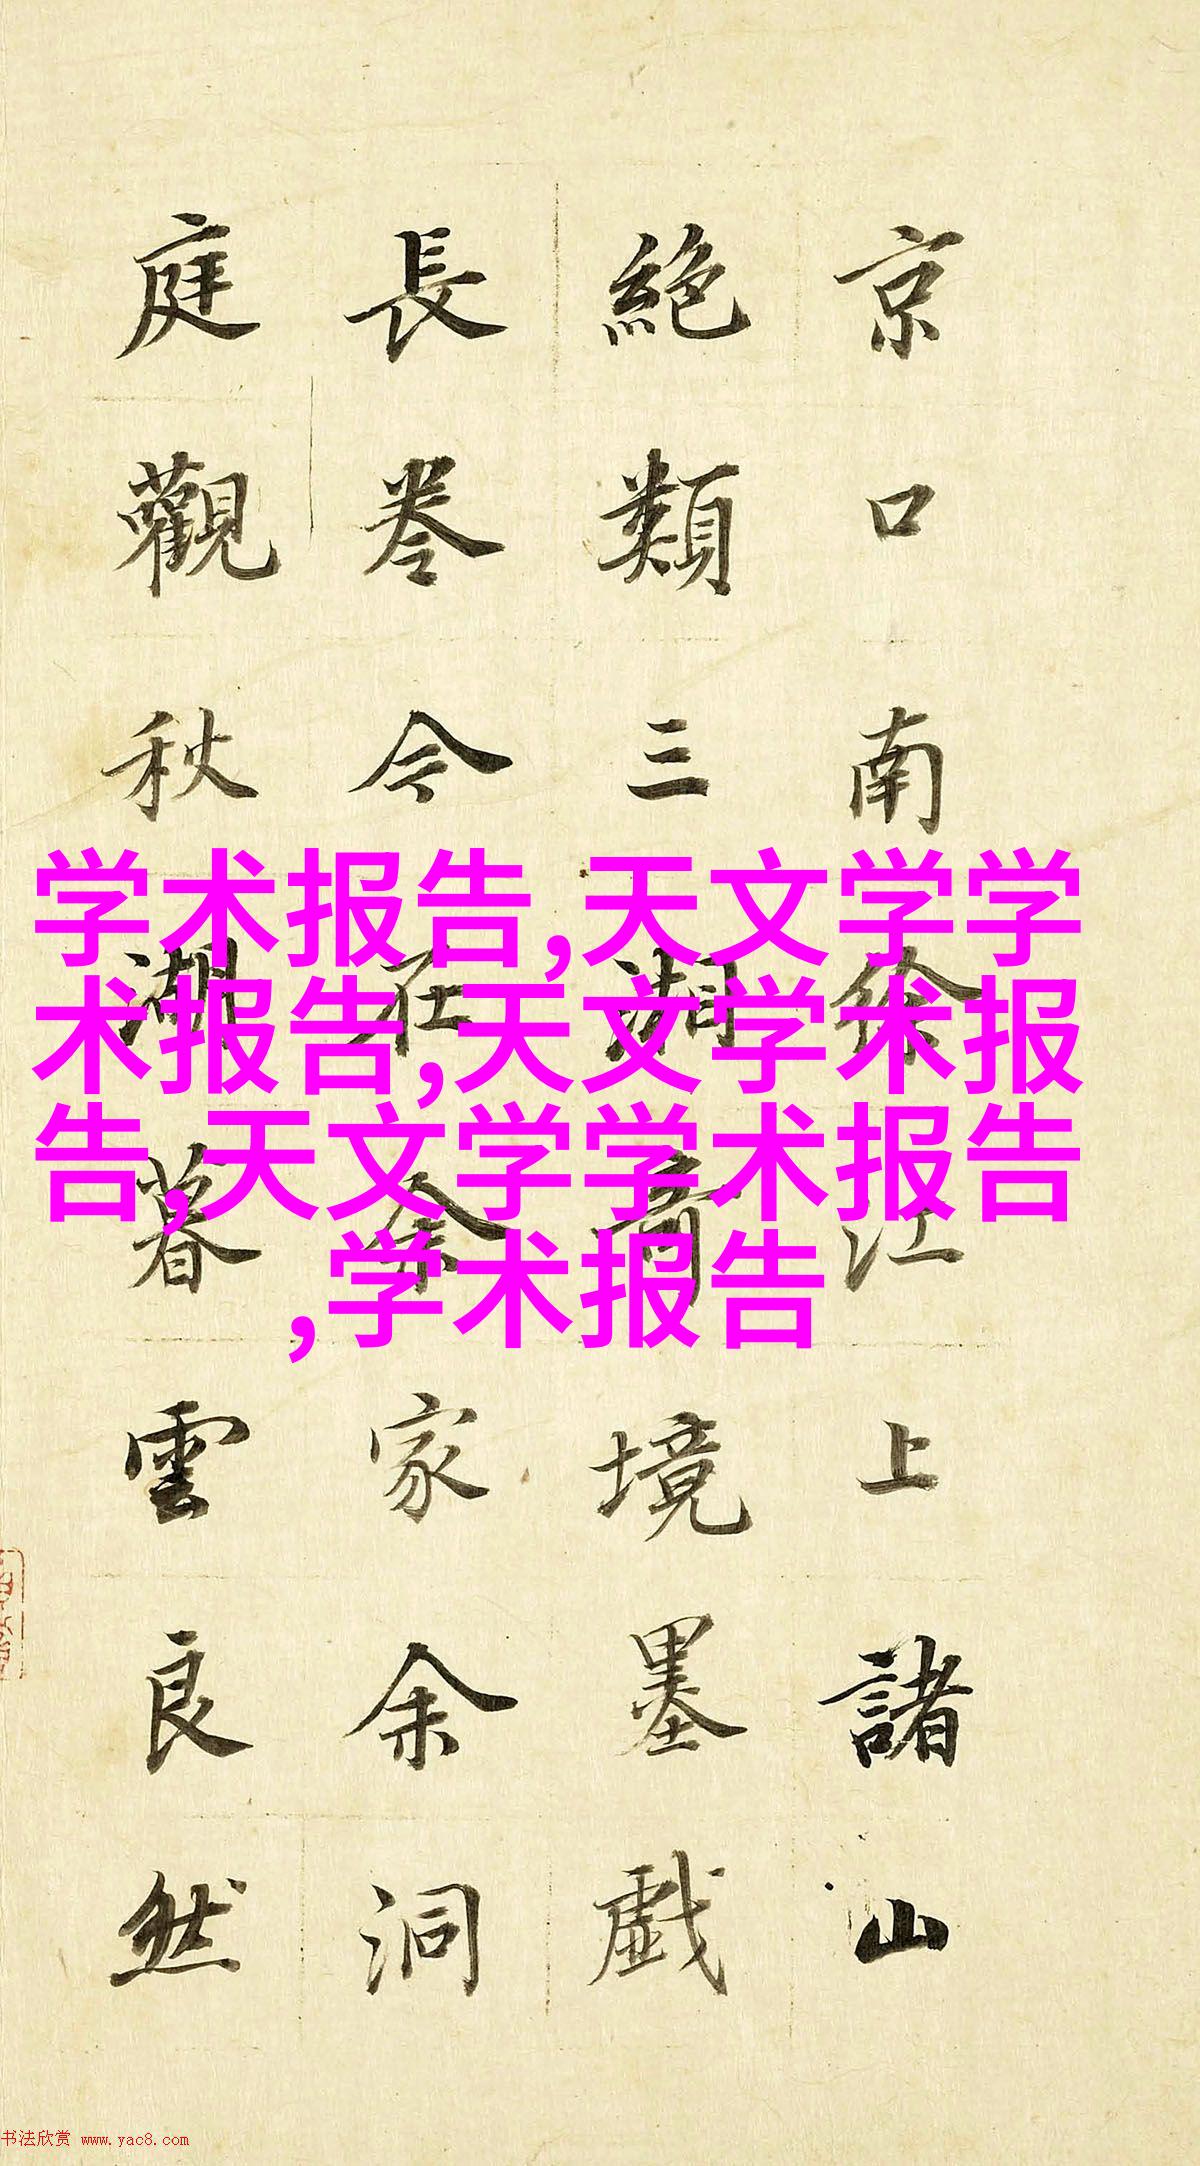 京口南徐江上諸山
絶類三湘奇境墨戲
長卷今在余家余洞
庭觀秋湖暮雲良然
学术报告,天文学学
术报告,天文学术报
告,天文学学术报告
,学术报告
书法欣赏 www.yac8.com